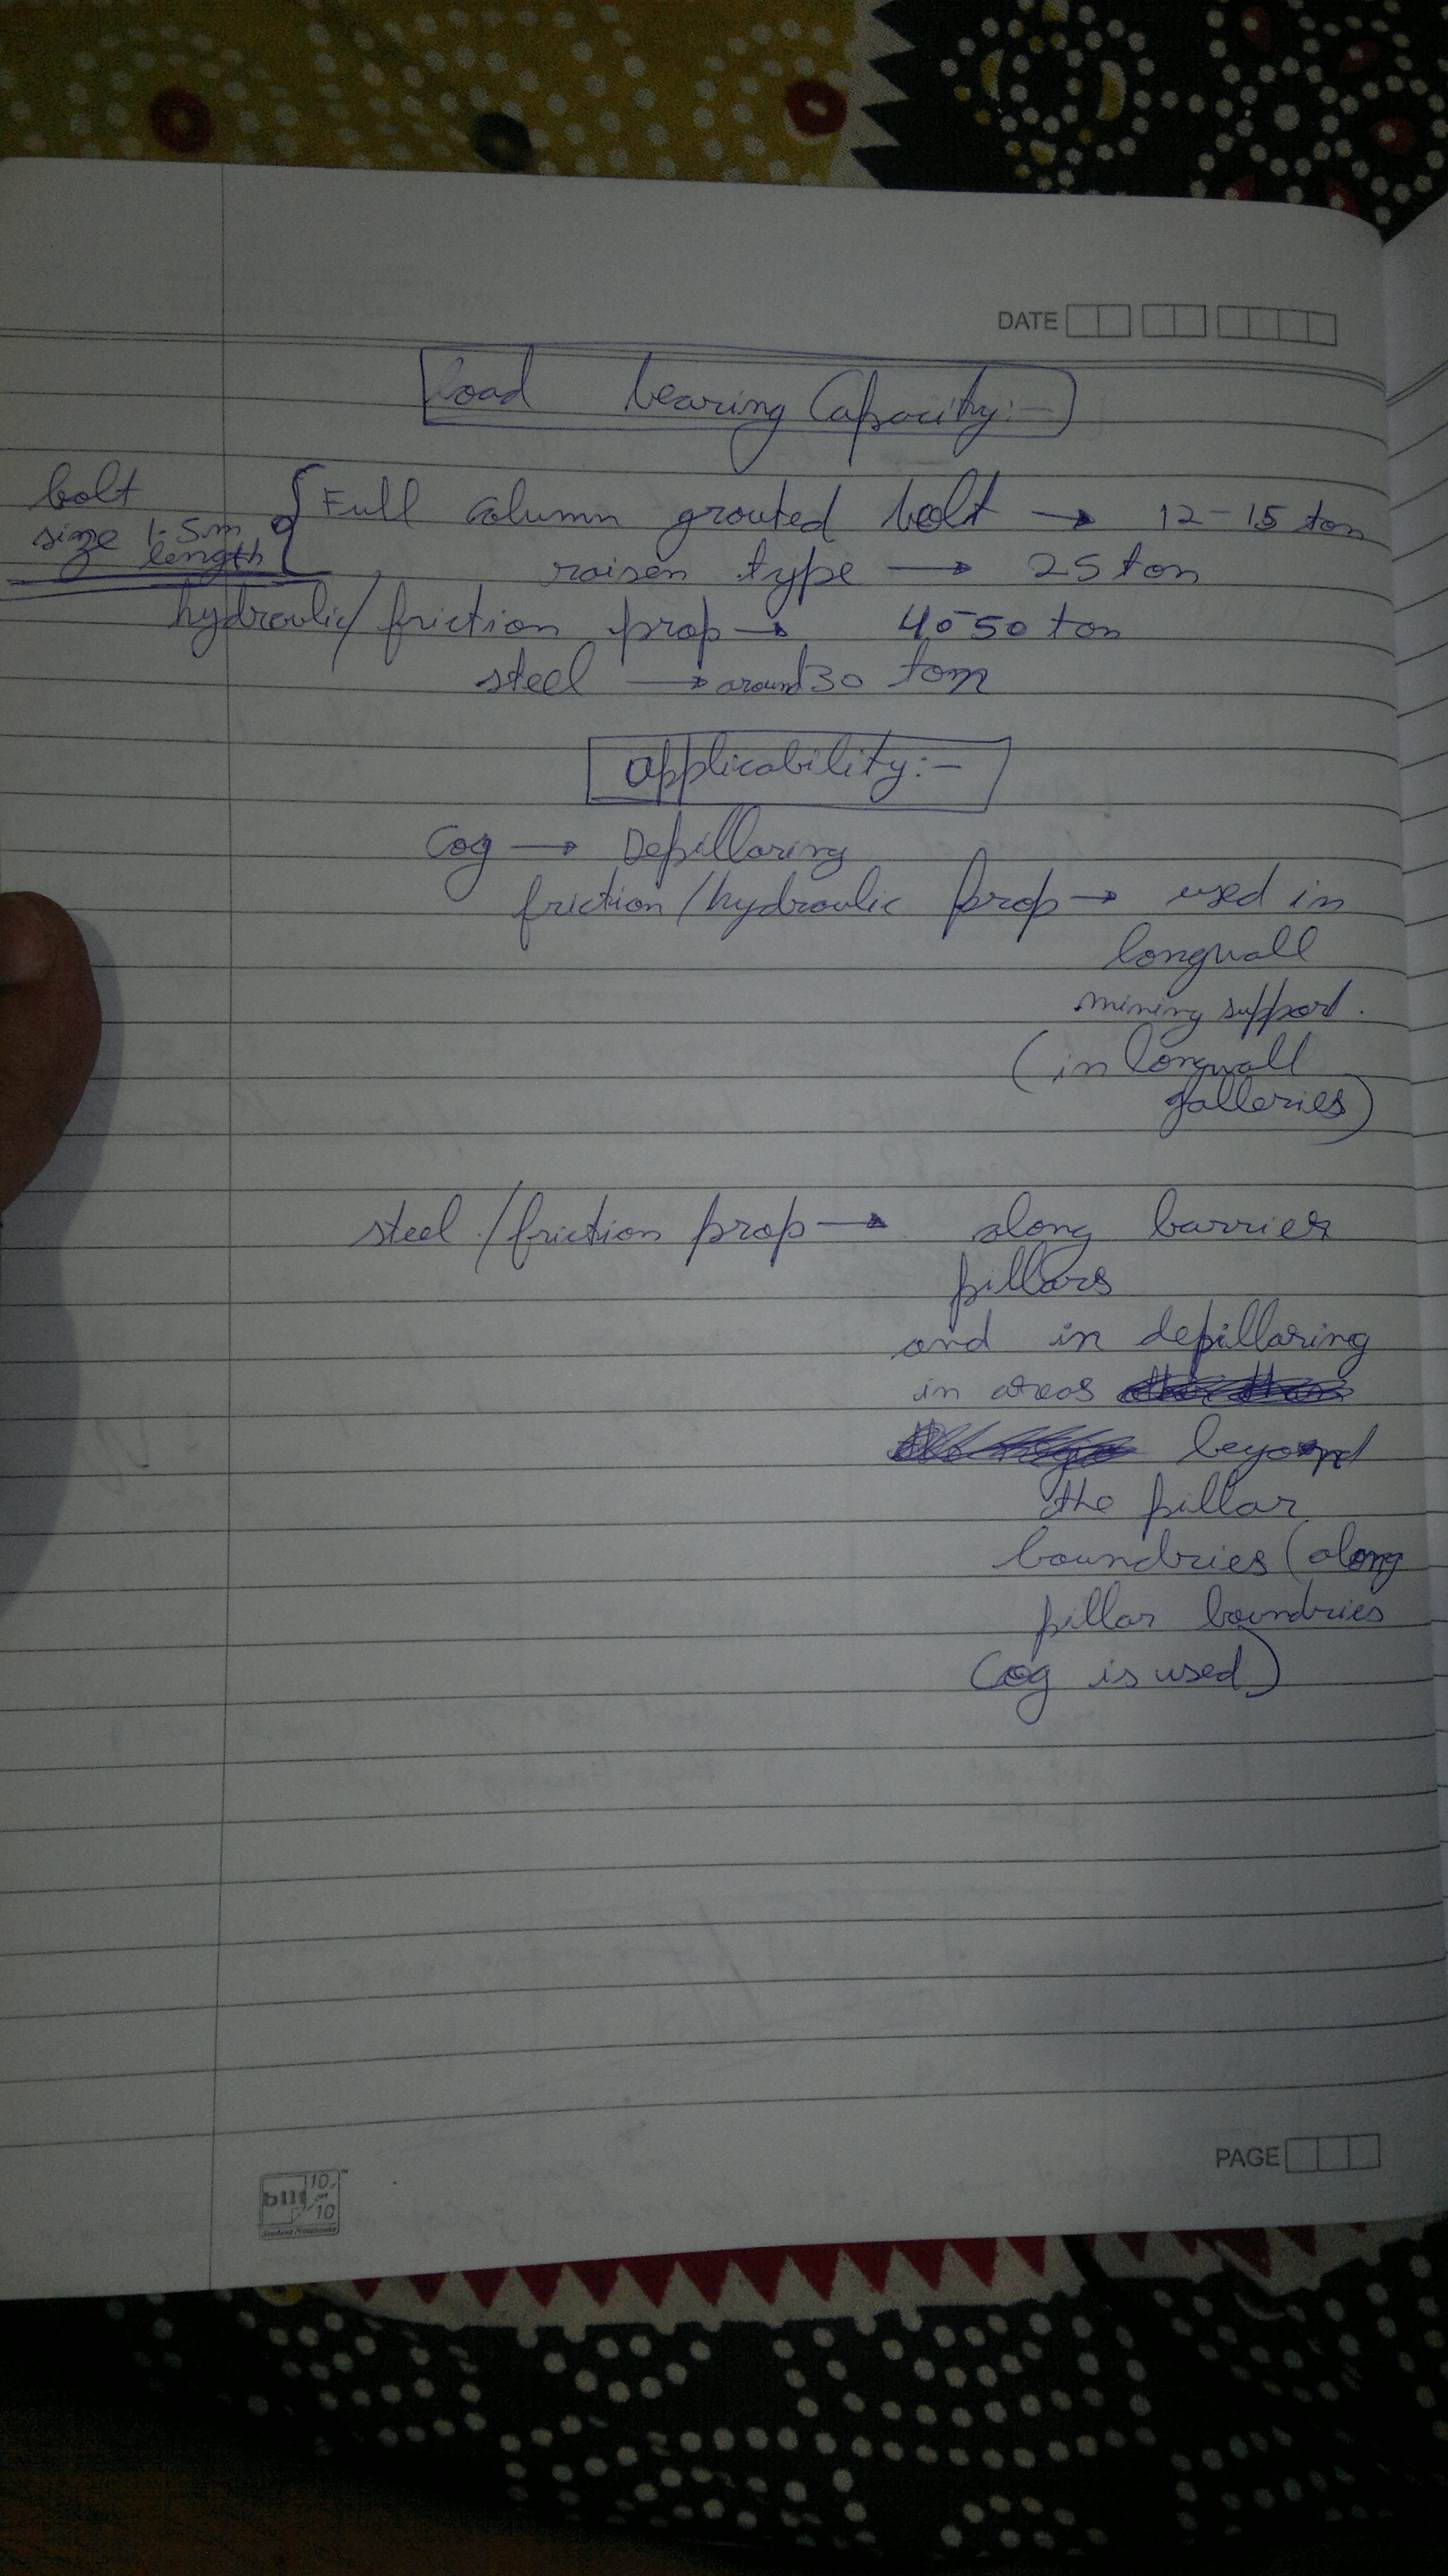 DATE
Load bearing Capacity:-
bolt size 1.5m length { Full column grouted bolt → 12-15 ton
raisen type → 25 ton
hydraulic/friction prop → 40-50 ton
steel → around 30 ton
applicability:-
Cog → Depillaring
friction/hydraulic prop → used in
longwall
mining support.
(in longwall
galleries)
steel/friction prop → along barrier
pillars
and in depillaring
in areas
beyond
the pillar
boundries (along
pillar boundries
Cog is used)
PAGE
bilt 10 on 10
Student Notebooks